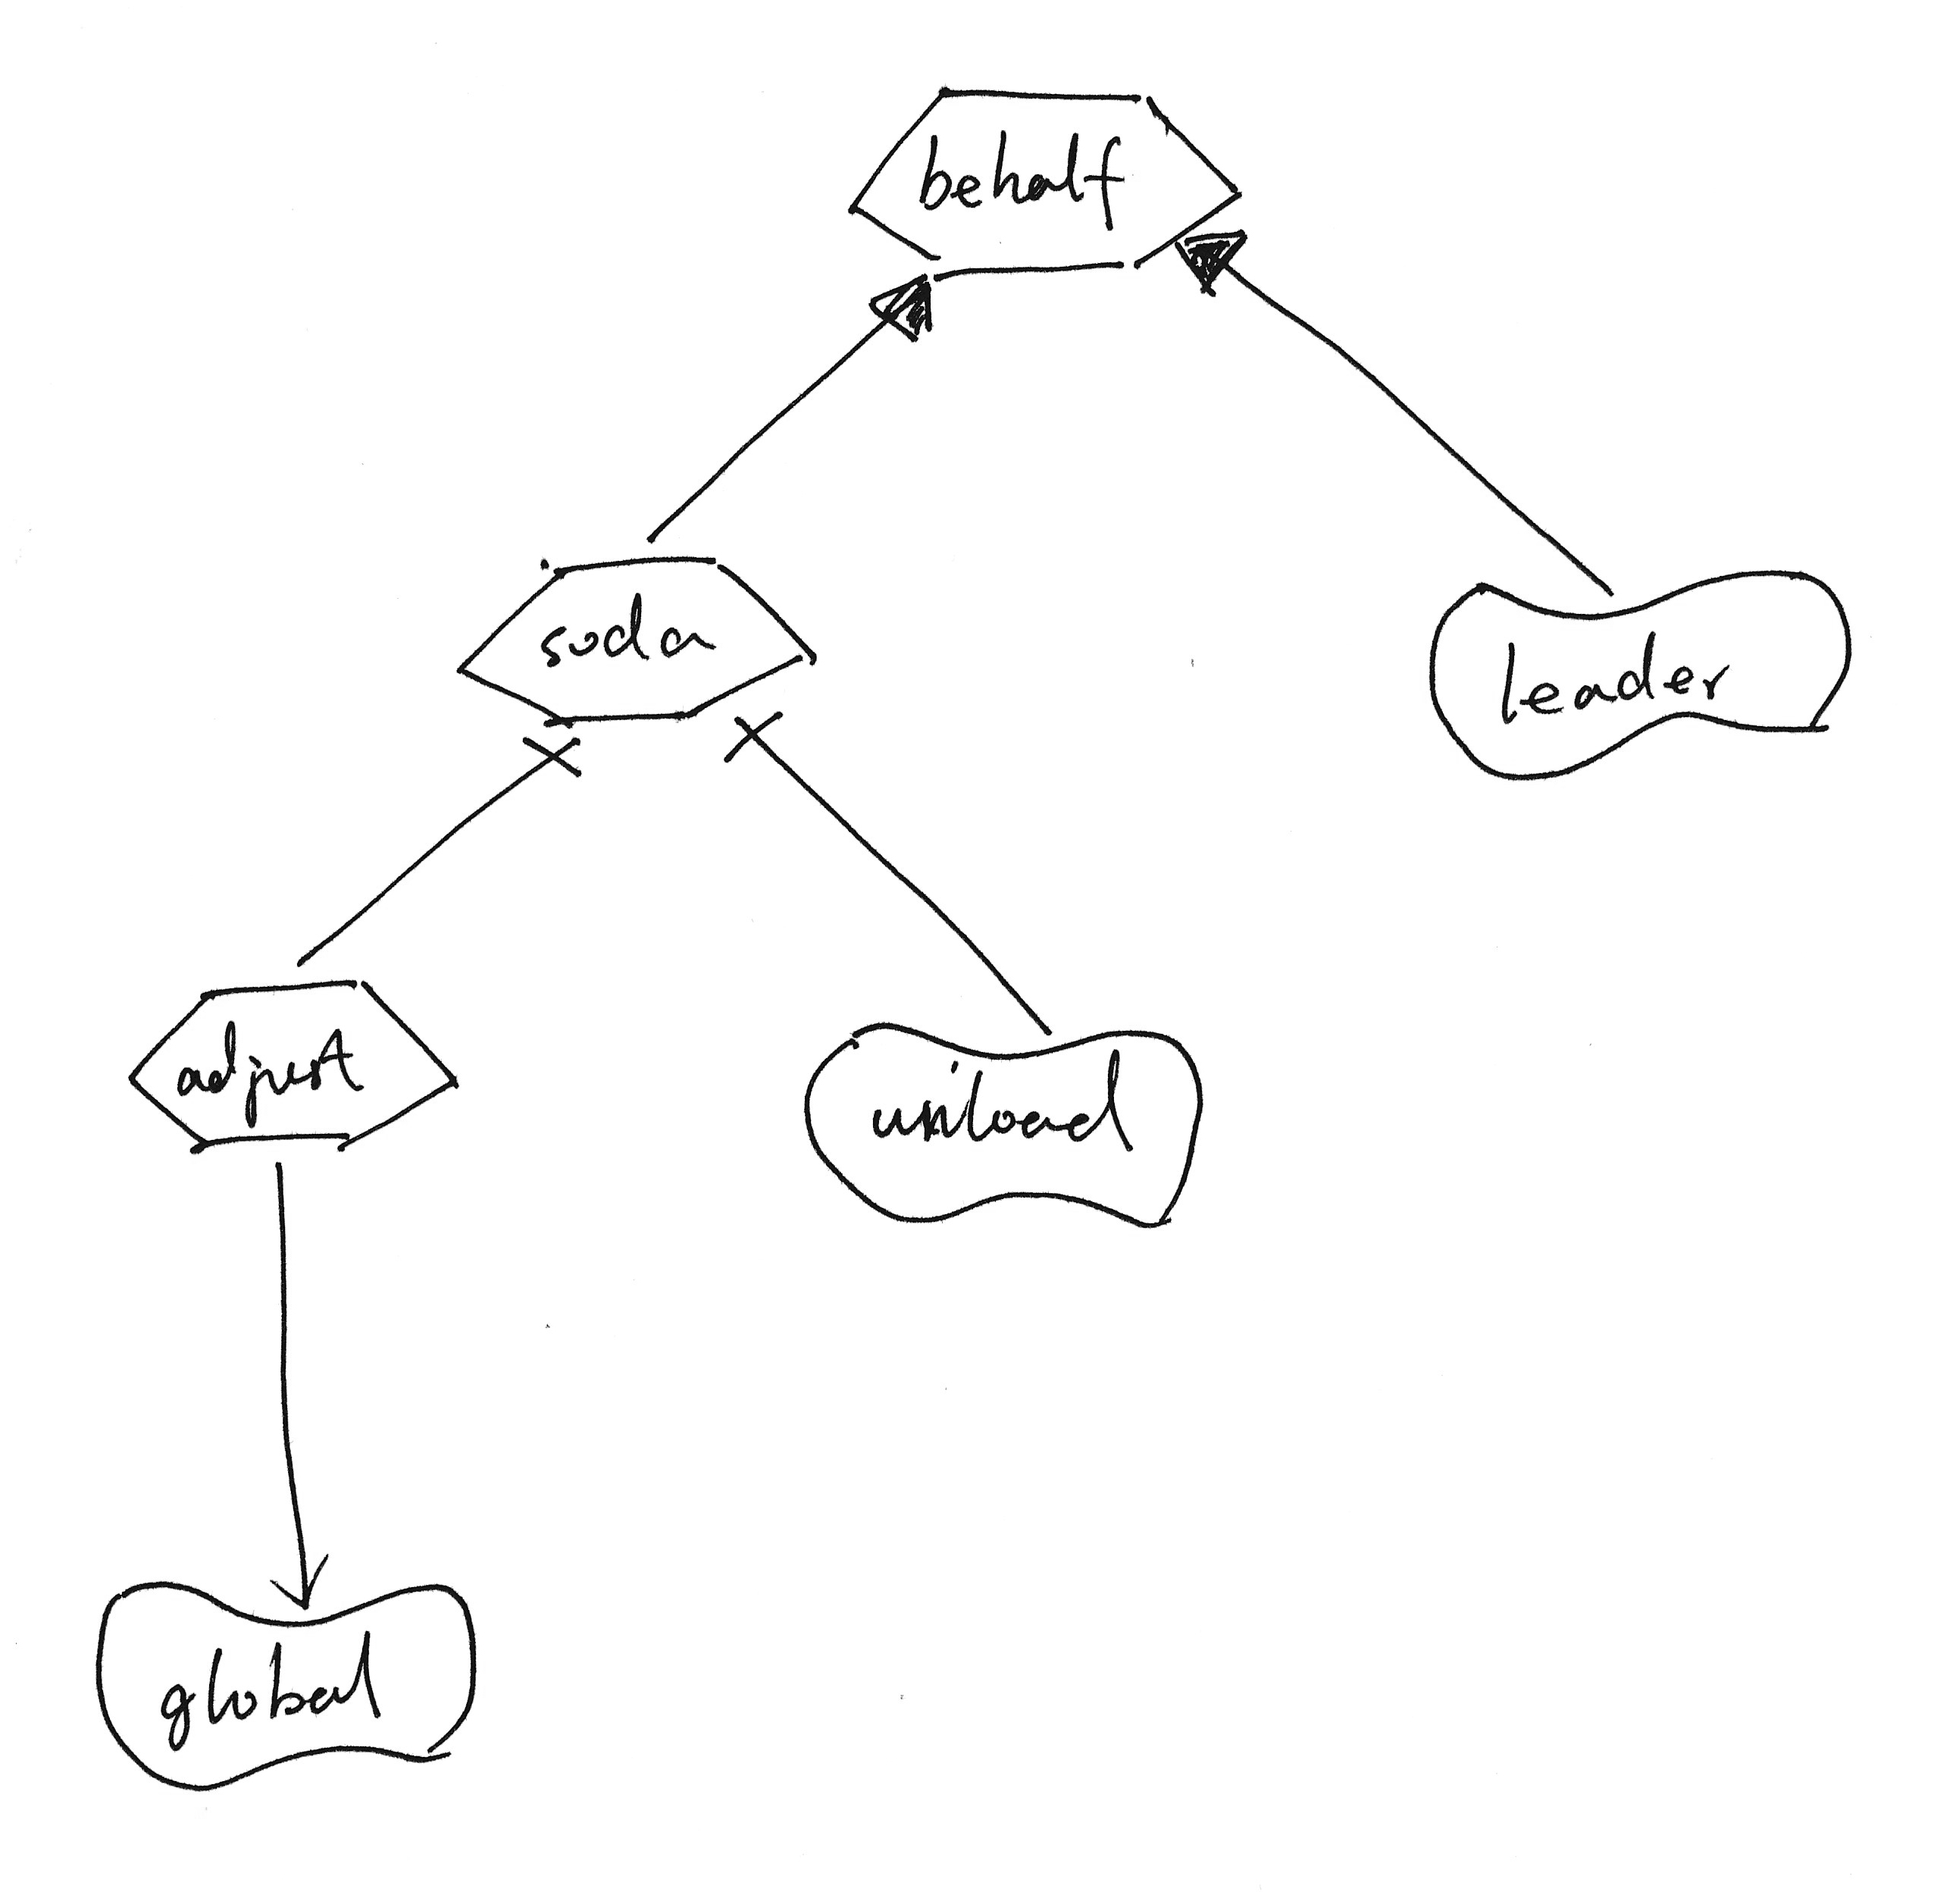 behalf
soda
leader
adjust
unload
global